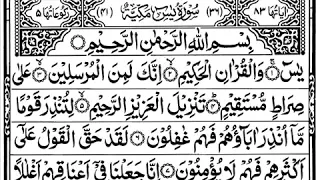 اٰیَاتُهَا ٨٣ (٣٦) سُوْرَةُ یٰسٓ مَكِّیَّةٌ (٤١) رُكُوْعَاتُهَا ٥
بِسْمِ اللّٰهِ الرَّحْمٰنِ الرَّحِیْمِ
یٰسٓ ۚ﴿١﴾ وَالْقُرْاٰنِ الْحَكِیْمِ ۙ﴿٢﴾ اِنَّكَ لَمِنَ الْمُرْسَلِیْنَ ۙ﴿٣﴾ عَلٰی
صِرَاطٍ مُّسْتَقِیْمٍ ؕ﴿٤﴾ تَنْزِیْلَ الْعَزِیْزِ الرَّحِیْمِ ۙ﴿٥﴾ لِتُنْذِرَ قَوْمًا
مَّاۤ اُنْذِرَ اٰبَآؤُهُمْ فَهُمْ غٰفِلُوْنَ ﴿٦﴾ لَقَدْ حَقَّ الْقَوْلُ عَلٰۤی
اَكْثَرِهِمْ فَهُمْ لَا یُؤْمِنُوْنَ ﴿٧﴾ اِنَّا جَعَلْنَا فِیْۤ اَعْنَاقِهِمْ اَغْلٰلًا